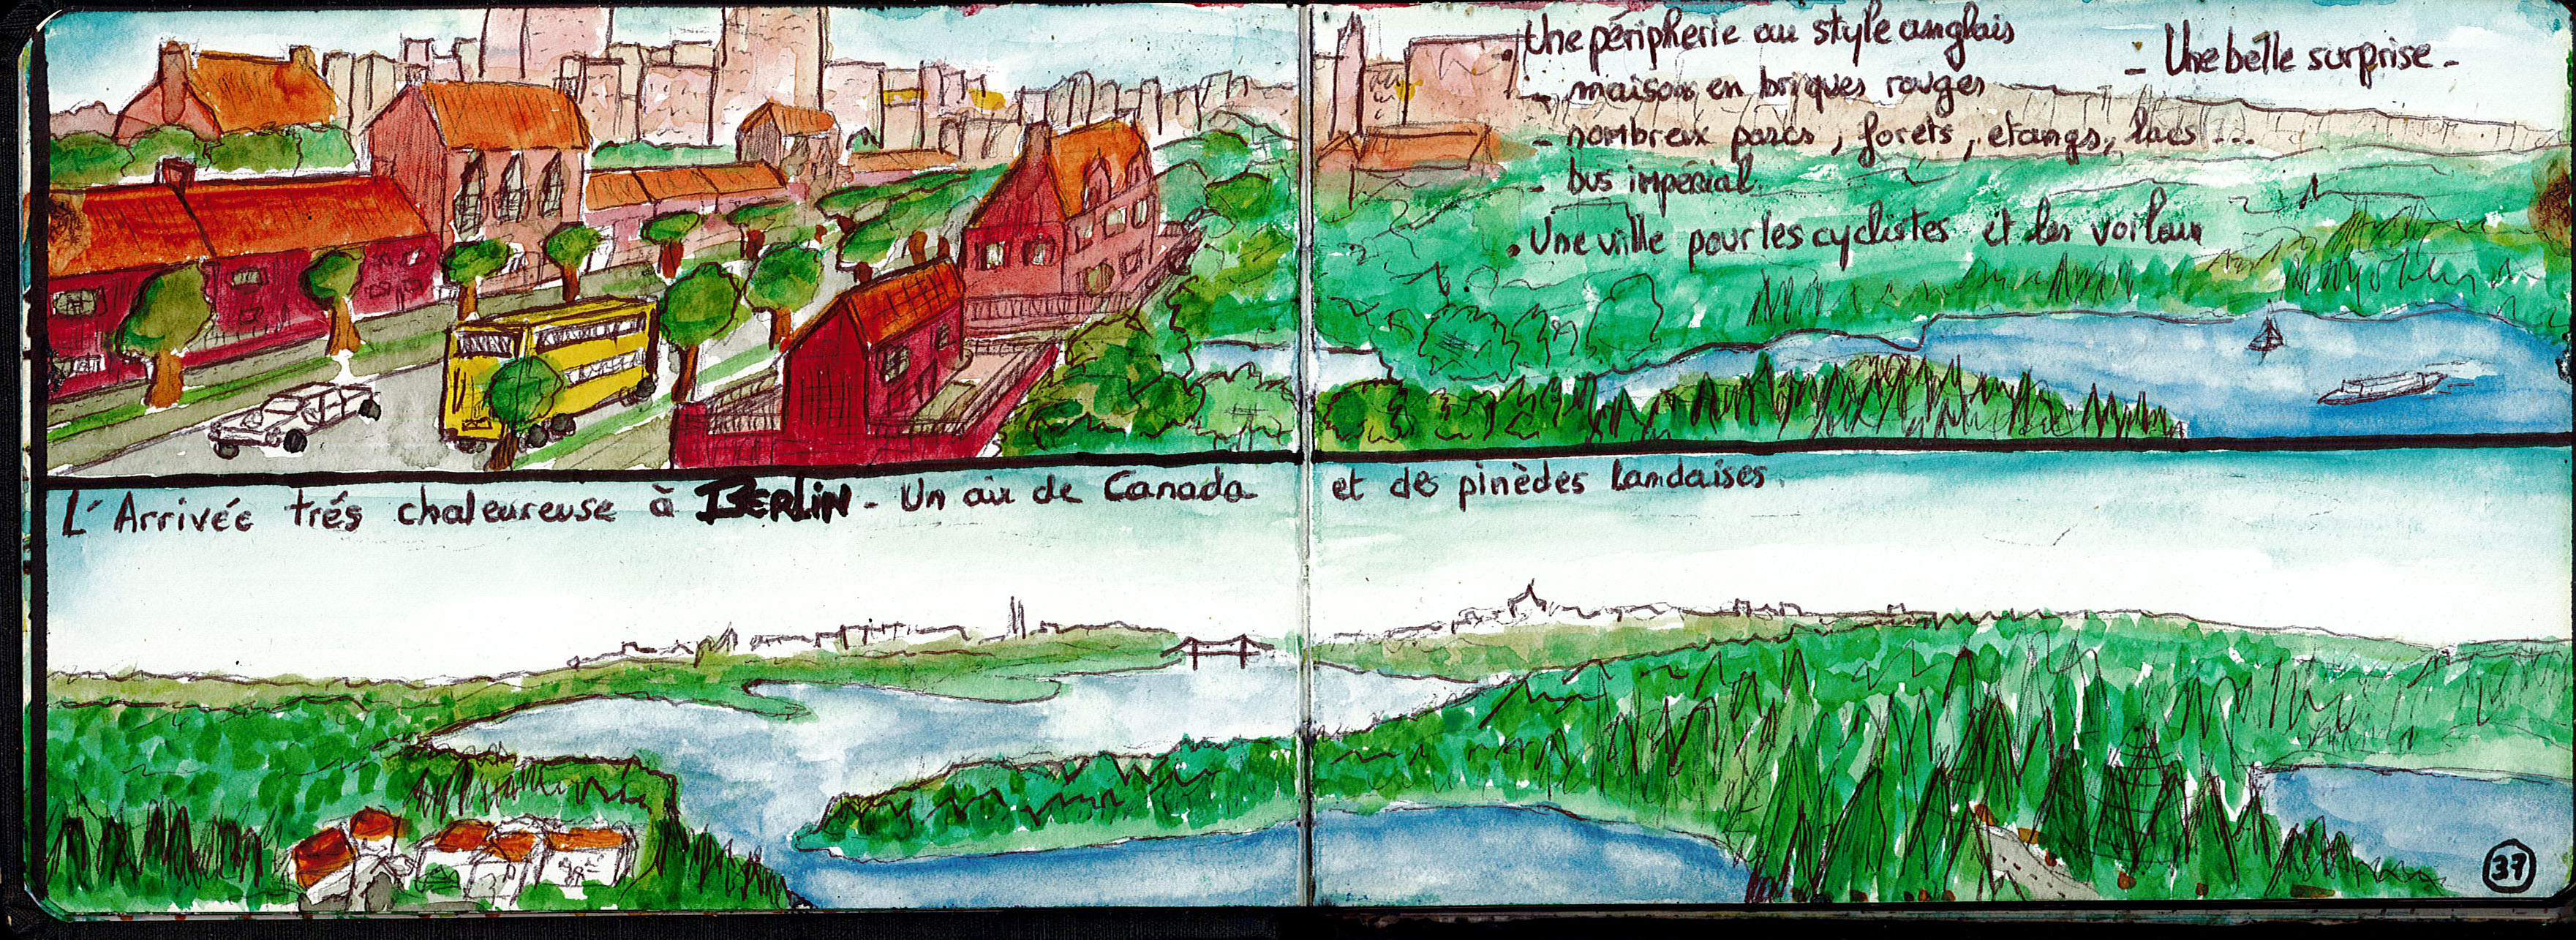 . Une péripherie au style anglais
- maison en briques rouges
- nombreux parcs, forets, etangs, lacs ...
- bus impérial
. Une ville pour les cyclistes et les voileux
- Une belle surprise -
L'Arrivée trés chaleureuse à BERLIN - Un air de Canada et des pinèdes landaises
37